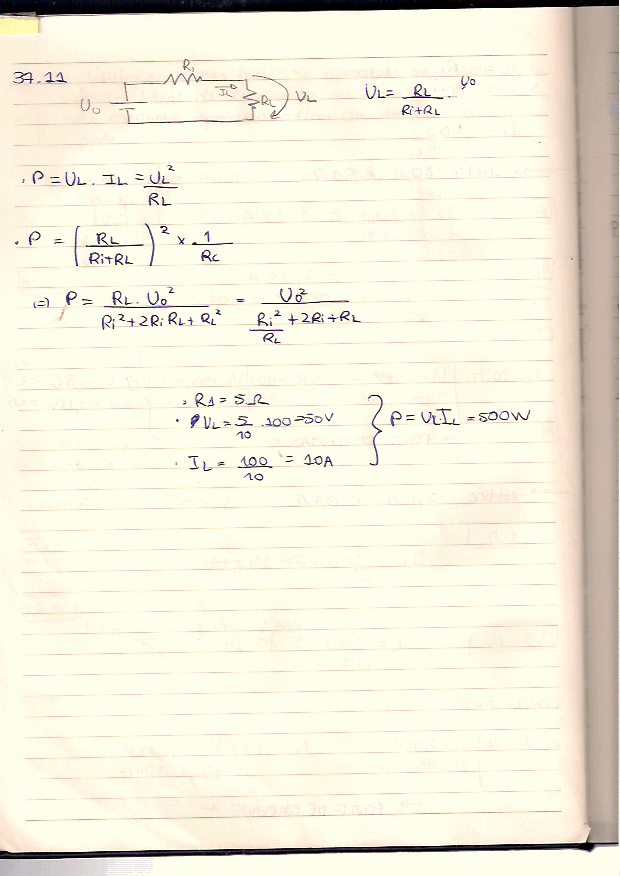 37.11
Ri
U₀ IL RL UL
UL = RL/(Ri+RL) · U₀
· P = UL . IL = UL²/RL
· P = (RL/(Ri+RL))² × 1/RL
(=) P = RL . U₀²/(Ri²+2RiRL+RL²) = U₀²/(Ri²/RL + 2Ri+RL)
· R1 = 5Ω
· UL = 5/10 .100=50V
· IL = 100/10 = 10A
P = ULIL = 500W